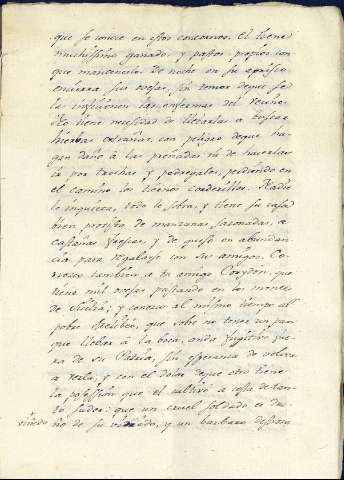 que se conoce en estos contornos. El tiene
muchissimo ganado, y pastos propios con
que mantenerlo. De noche en su aprisco
encierra sus ovejas, sin temor de que se
le inficionen las enfermas del vecino.
No tiene necesidad de llevarlas a buscar
hierbas extrañas, con peligro de que ha-
gan daño à las preñadas, ni de hacerlas
ir por trochas y pedregales, perdiendo en
el camino los tiernos corderillos. Nadie
le inquieta, todo le sobra, y tiene su casa
bien provista de manzanas sazonadas, de
castañas frescas, y de queso en abundan-
cia para regalarse con sus amigos. Co-
nozco tambien a tu amigo Corydon, que
tiene mil ovejas pastando en los montes
de Sicilia; y conozco al mismo tiempo al
pobre Melibeo, que sobre no tener un pan
que llebar à la boca, anda fugitivo fue-
ra de su Patria, sin esperanza de volver
a verla, y con el dolor de que otro tiene
la posession que el cultivò a costa de tan-
to sudor: que un cruel soldado es due-
ño de su viñedo, y un barbaro despota
viñedo